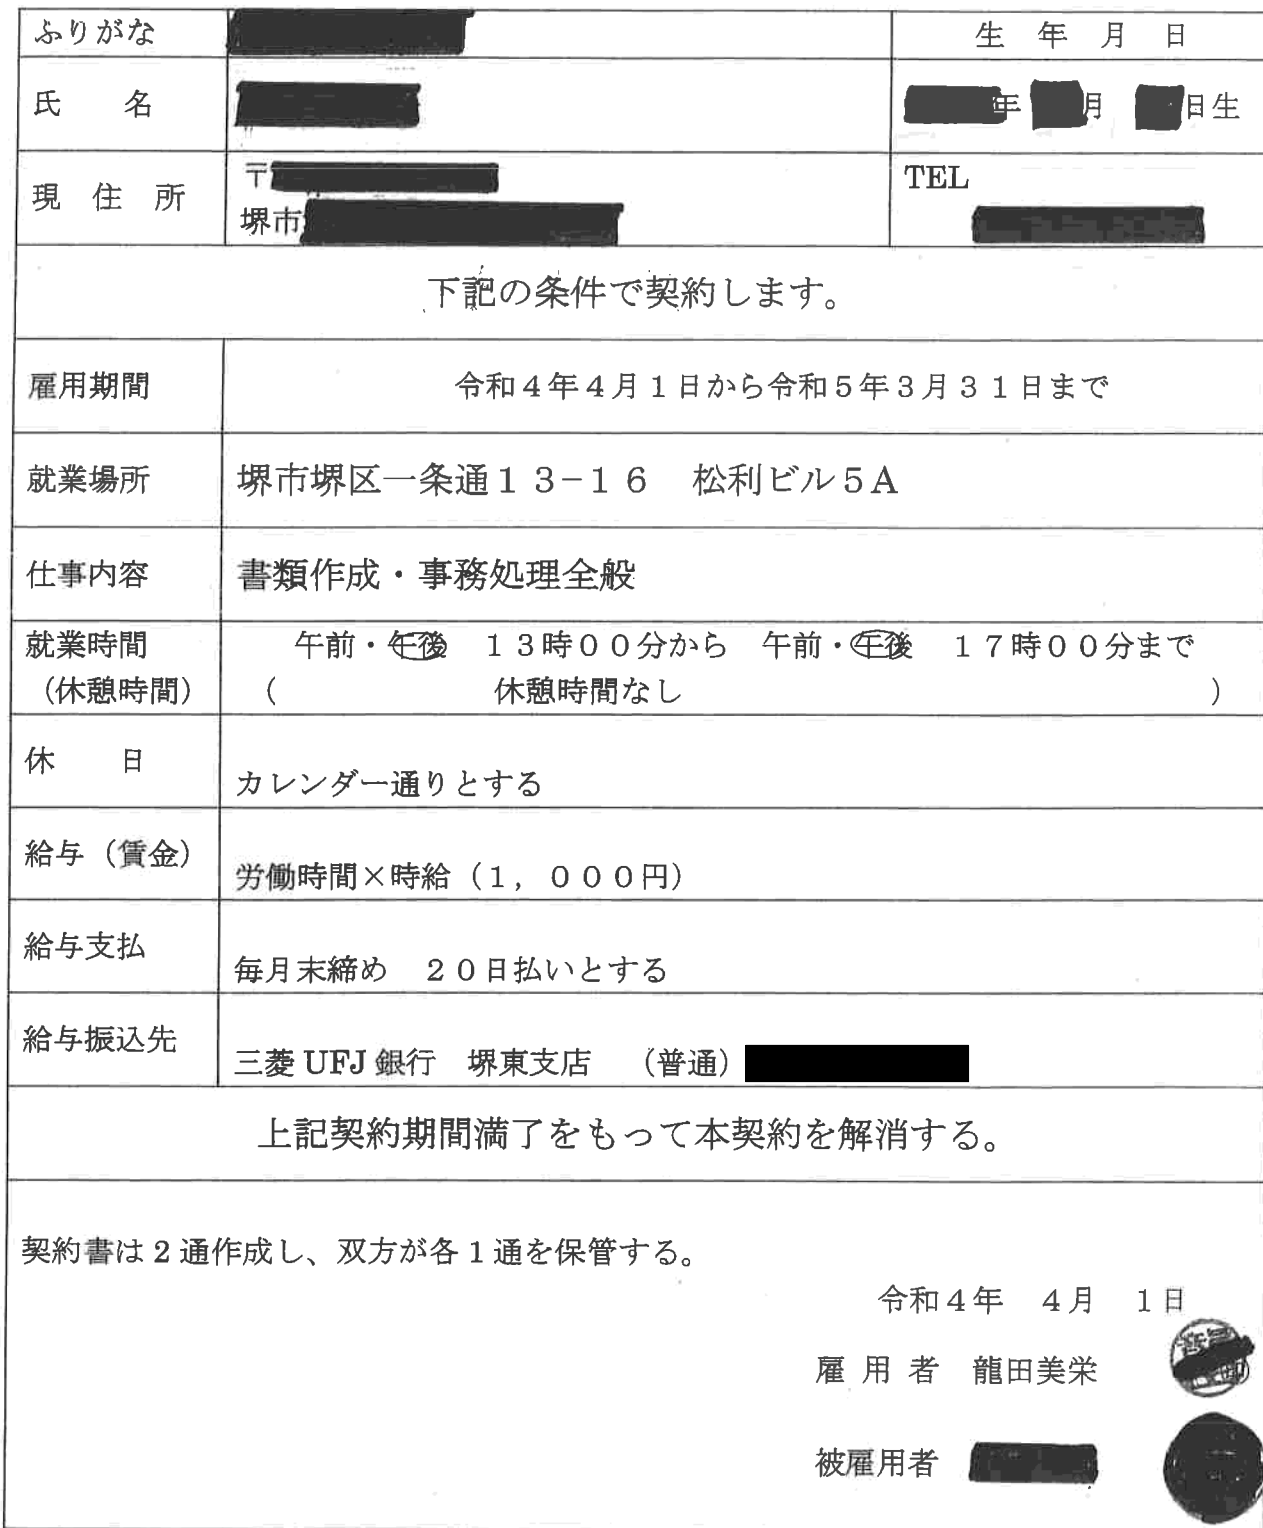 ふりがな
生 年 月 日
氏 名
年 月 日生
現 住 所
〒
堺市
TEL
下記の条件で契約します。
雇用期間
令和4年4月1日から令和5年3月31日まで
就業場所
堺市堺区一条通13−16 松利ビル5A
仕事内容
書類作成・事務処理全般
就業時間
(休憩時間)
午前・午後 13時00分から 午前・午後 17時00分まで
( 休憩時間なし )
休 日
カレンダー通りとする
給与(賃金)
労働時間×時給(1,000円)
給与支払
毎月末締め 20日払いとする
給与振込先
三菱UFJ銀行 堺東支店 (普通)
上記契約期間満了をもって本契約を解消する。
契約書は2通作成し、双方が各1通を保管する。
令和4年 4月 1日
雇 用 者 龍田美栄
被雇用者